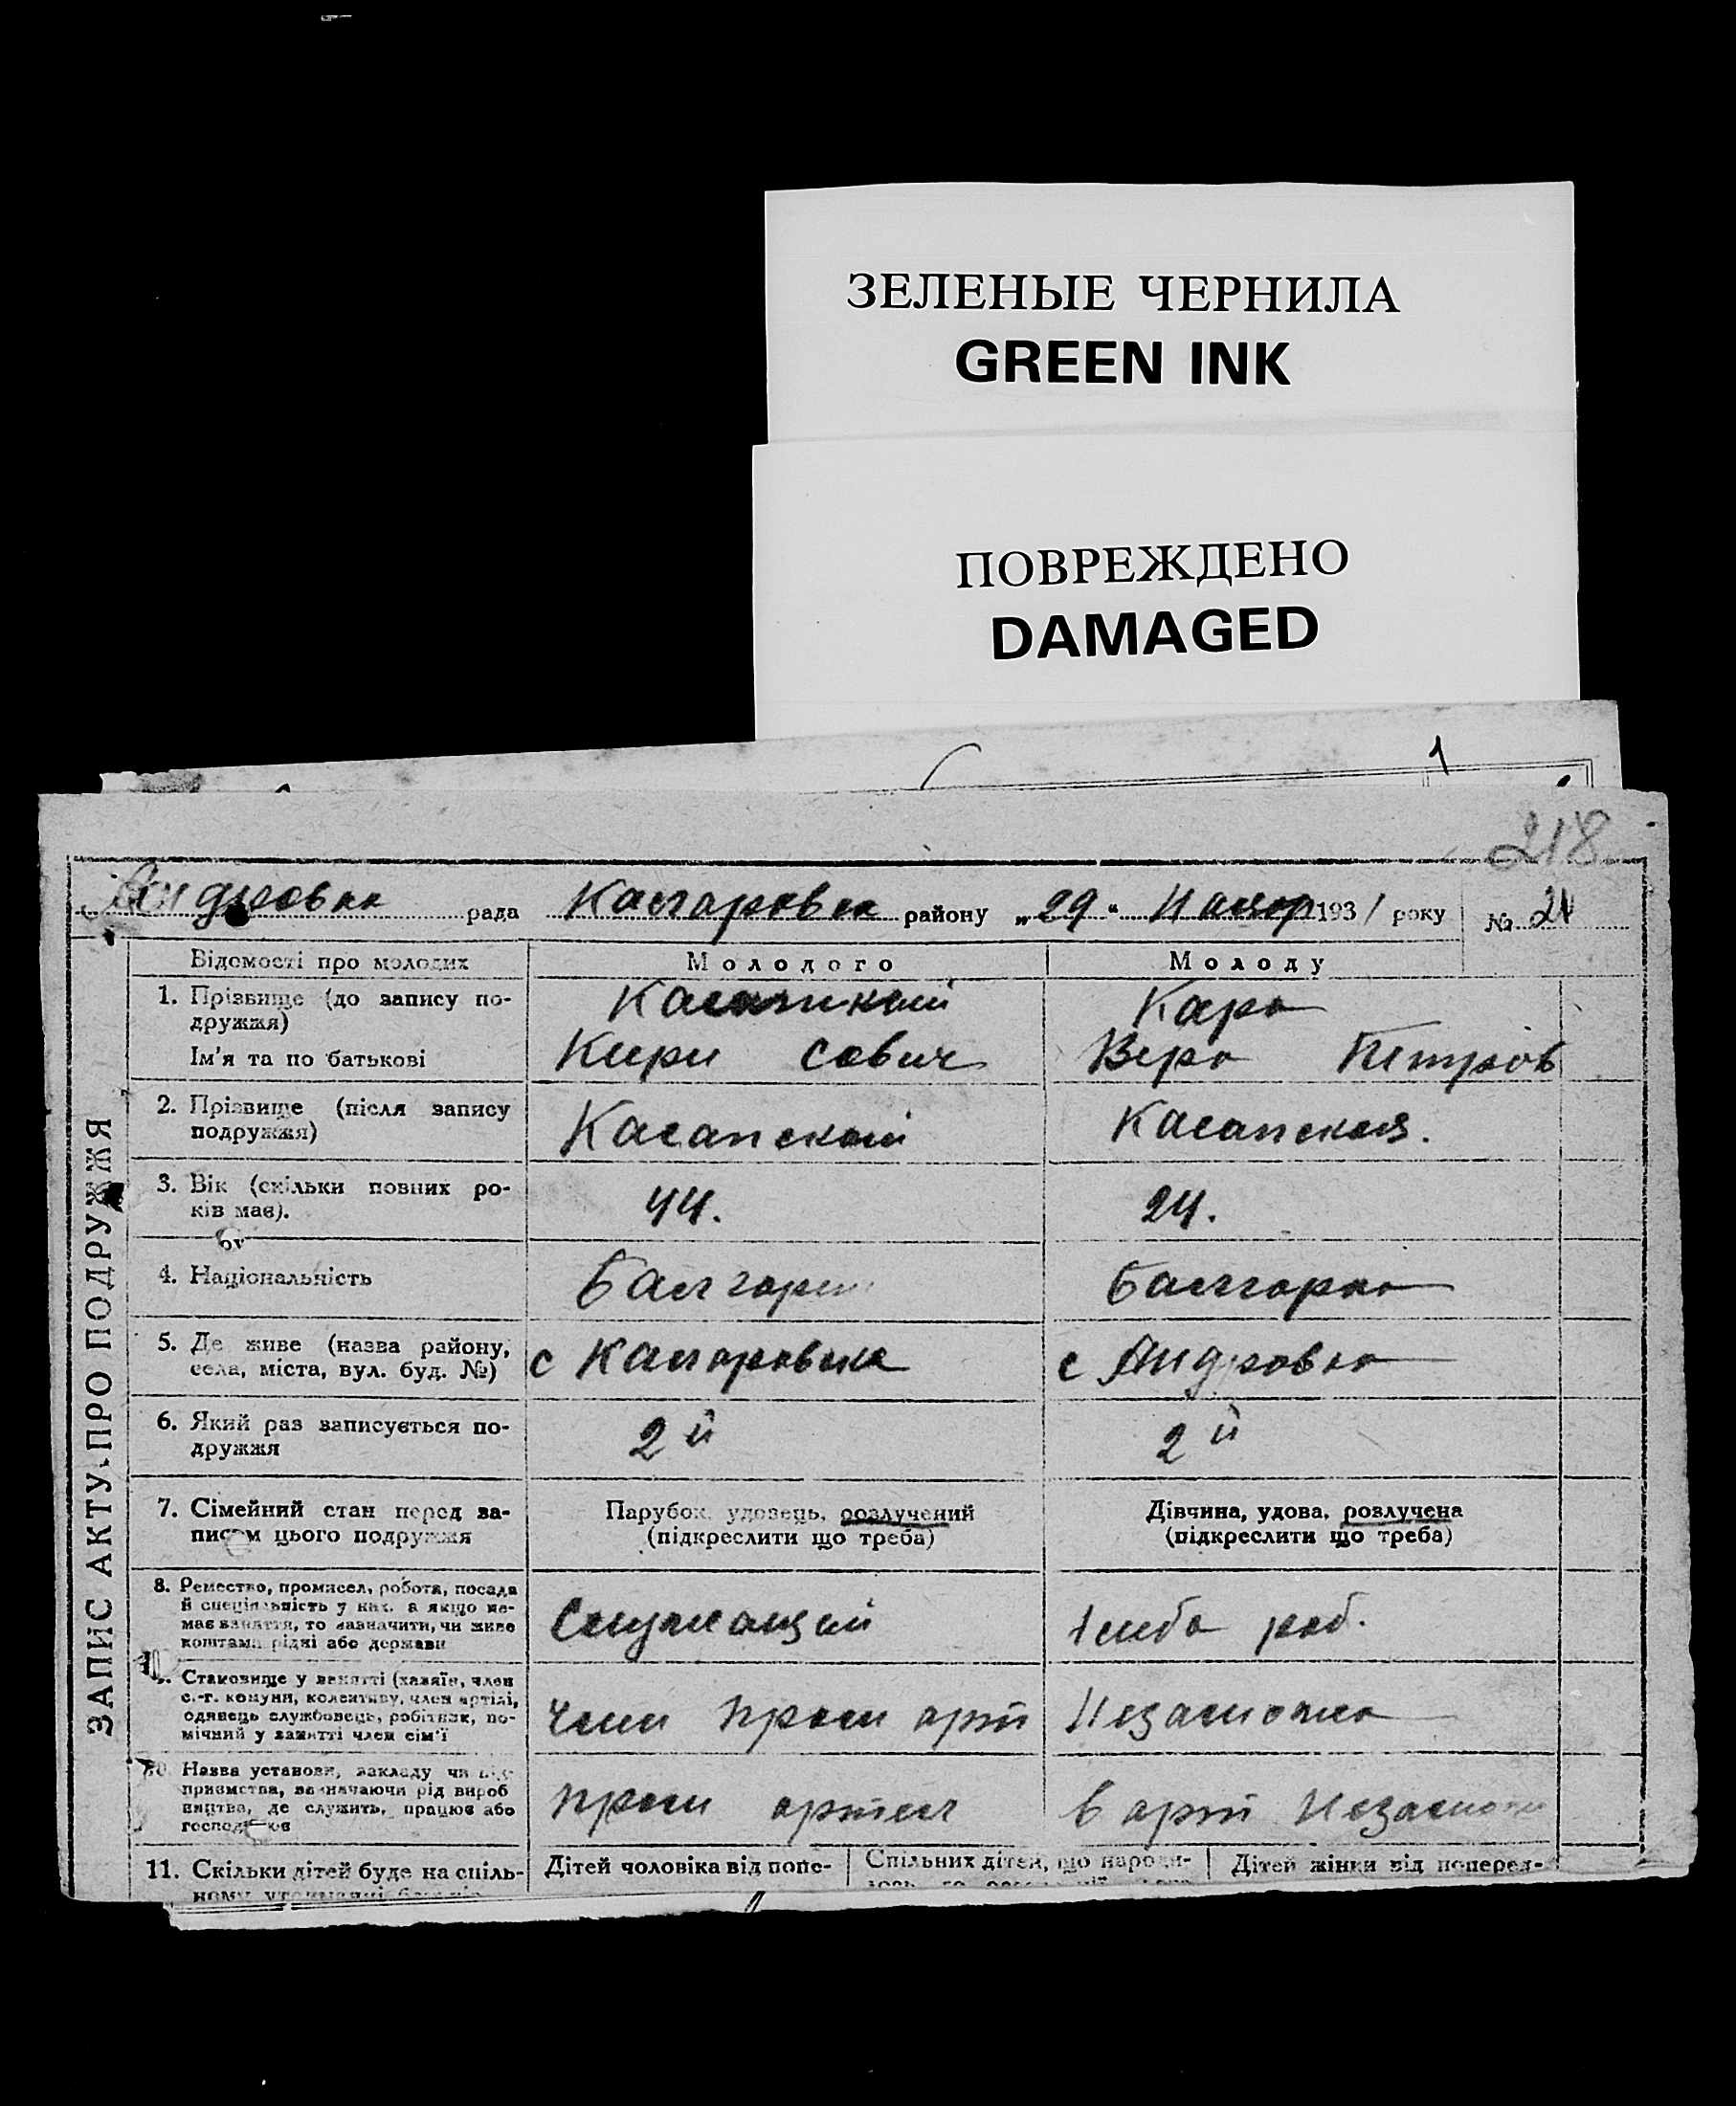 ЗЕЛЕНЫЕ ЧЕРНИЛА
GREEN INK
ПОВРЕЖДЕНО
DAMAGED
218
рада Коларовка району „29“ 1931 року № 21
Відомості про молодих Молодого Молоду
1. Прізвище (до запису по- Кара
дружжя)
Ім'я та по батькові Вера Петров
2. Прізвище (після запису Касапский Касапская.
подружжя)
3. Вік (скільки повних ро- 44. 24.
ків має).
4. Національність Болгарин Болгарка
5. Де живе (назва району, с Коларовка с Андровка
села, міста, вул. буд. №)
6. Який раз записується по- 2й 2й
дружжя
7. Сімейний стан перед за- Парубок, удовець, розлучений Дівчина, удова, розлучена
писом цього подружжя (підкреслити що треба) (підкреслити що треба)
8. Ремество, промисел, робота, посада
й спеціяльність у них, а якщо не- Служащий роб.
має заняття, то зазначити, чи живе
коштами рідні або держави
9. Становище у занятті (хазяїн, член
с.-г. комуни, колективу, член артілі, член пром арт Незаможна
одинець службовець, робітник, по-
мічний у занятті член сім'ї
10. Назва установи, закладу чи під-
приємства, зазначаючи рід вироб пром артел в арт Незамож
ництва, де служить, працює або
господ
11. Скільки дітей буде на спіль- Дітей чоловіка від попе- Спільних дітей, що народи- Дітей жінки від поперед-
ному
ЗАПИС АКТУ ПРО ПОДРУЖЖЯ